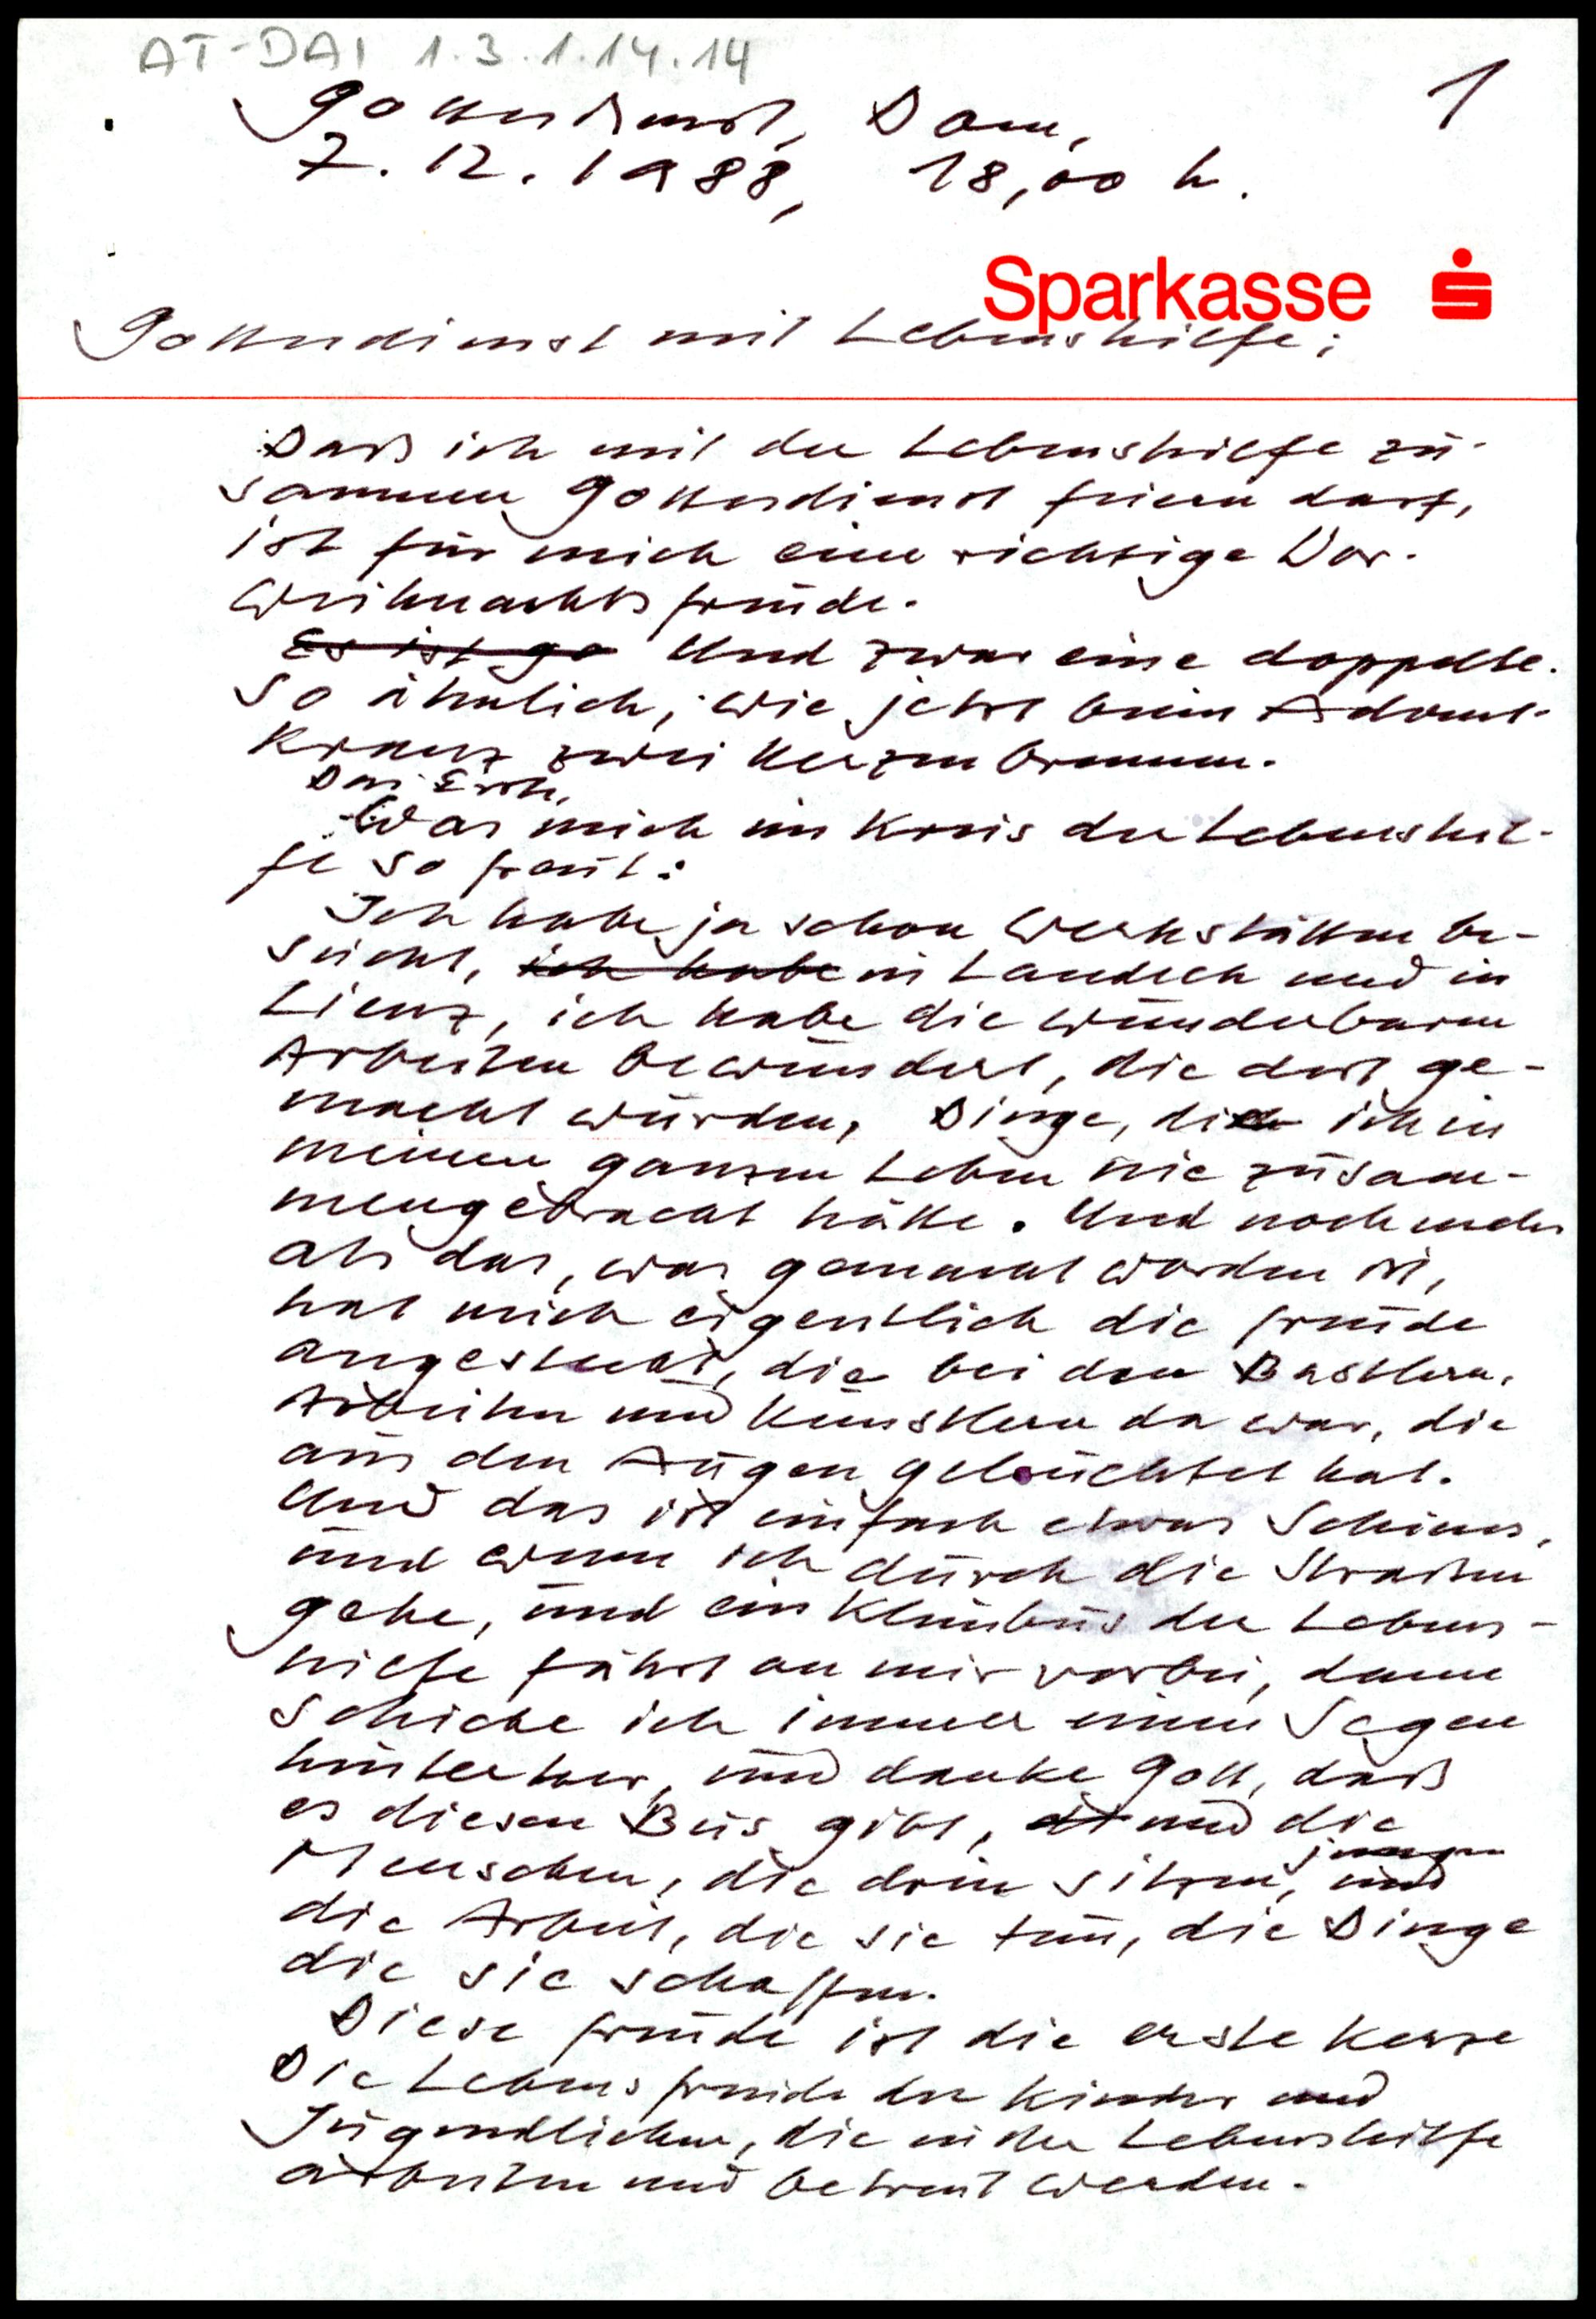 AT-DAI 1.3.1.14.14
1
Gottesdienst, Dom,
7.12.1988, 18,00 h.
Sparkasse
Gottesdienst mit Lebenshilfe;
Daß ich mit der Lebenshilfe zu-
sammen Gottesdienst feiern darf,
ist für mich eine richtige Vor-
weihnachtsfreude.
Es ist ge Und zwar eine doppelte.
So ähnlich, wie jetzt beim Advent-
kranz zwei Kerzen brennen.
Das Erste,
Was mich im Kreis der Lebenshil-
fe so freut:
Ich habe ja schon Werkstätten be-
sucht, ich habe in Landeck und in
Lienz, ich habe die wunderbaren
Arbeiten bewundert, die dort ge-
macht wurden, Dinge, die ich in
meinem ganzen Leben nie zusam-
mengebracht hätte. Und noch mehr
als das, was gemacht worden ist,
hat mich eigentlich die Freude
angesteckt, die bei den Bastlern,
Arbeitern und Künstlern da war, die
aus den Augen geleuchtet hat.
Und das ist einfach etwas Schönes,
und wenn ich durch die Straßen
gehe, und ein Kleinbus der Lebens-
hilfe fährt an mir vorbei, dann
schicke ich immer einen Segen
hinterher, und danke Gott, daß
es diesen Bus gibt, und die
jungen
Menschen, die drin sitzen, und
die Arbeit, die sie tun, die Dinge
die sie schaffen.
Diese Freude ist die erste Kerze
Die Lebensfreude der Kinder und
Jugendlichen, die in der Lebenshilfe
arbeiten und betreut werden.